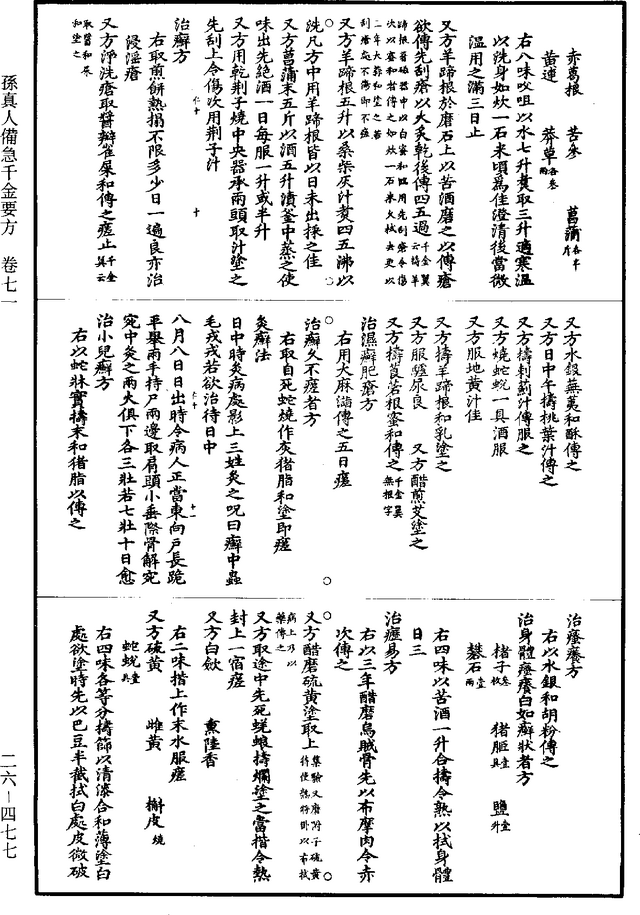 孫真人備急千金要方　卷七一
二六—四七七
赤葛根　苦參　菖蒲各半斤
黄連　莽草各叁兩
右八味㕮咀以水七升煑取三升適寒温
以洗身如炊一石米頃爲佳澄清後當微
温用之滿三日止
又方羊蹄根於磨石上以苦酒磨之以傅瘡
欲傅先刮瘡以火炙乾後傅四五過
又方羊蹄根五升以桑柴灰汁煑四五沸以
洗凡方中用羊蹄根皆以日未出採之佳
又方菖蒲末五斤以酒五升漬釜中蒸之使
味出先絶酒一日每服一升或半升
又方用乾荆子燒中央器承兩頭取汁塗之
先刮上令傷次用荆子汁
治癬方
右取煎餅熱搨不限多少日一遍良亦治
浸淫瘡
又方淨洗瘡取醬瓣雀屎和傅之瘥止千金翼云
取醬和屎和塗之
又方水銀蕪荑和酥傅之
又方日中午擣桃葉汁傅之
又方擣刺薊汁傅服之
又方燒蛇蛻一具酒服
又方服地黄汁佳
又方擣羊蹄根和乳塗之
又方服驢尿良　又方醋煎艾塗之
又方擣莨菪根蜜和傅之千金翼無根字
治濕癬肥瘡方
右用大麻㵀傅之五日瘥
治癬久不瘥者方
右取自死蛇燒作灰猪脂和塗即瘥
灸癬法
日中時灸病處影上三姓灸之呪曰癬中蟲
毛戎戎若欲治待日中
八月八日日出時令病人正當東向戸長跪
平舉兩手持戸兩邊取肩頭小垂際骨解宛
宛中灸之兩火俱下各三壯若七壯十日愈
治小兒癬方
右以蛇牀實擣末和猪脂以傅之
治瘙癢方
右以水銀和胡粉傅之
治身體瘙癢白如癬狀者方
楮子叁枚　猪胆壹具　鹽壹升
礬石壹兩
右四味以苦酒一升合擣令熟以拭身體
日三
治癧易方
右以三年醋磨烏賊骨先以布摩肉令赤
次傅之
又方醋磨硫黄塗取上集驗又磨附子硫黄
又方取途中先死蜣蜋擣爛塗之當揩令熱
封上一宿瘥
又方白斂　熏陸香
右二味揩上作末水服瘥
又方硫黄　雌黄　槲皮燒
蛇蛻壹具
右四味各等分擣篩以清漆合和薄塗白
處欲塗時先以巴豆半截拭白處皮微破